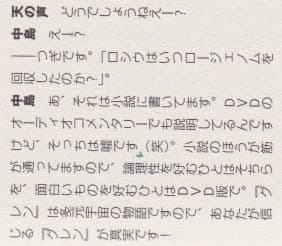 天の声 どうでしょうねえー?
中島 えー?
——つぎです。「ロシウはいつロージェノムを
回収したのか?」。
中島 あ、それは小説に書いてます。DVDの
オーディオコメンタリーでも説明してるんです
けど、そっちは嘘です(笑)。小説のほうが筋
が通ってますので、論理性を好むひとはそちら
を、面白いものを好むひとはDVD版で。『グ
レン』は多元宇宙の物語ですので、あなたが信
じる『グレン』が真実です!